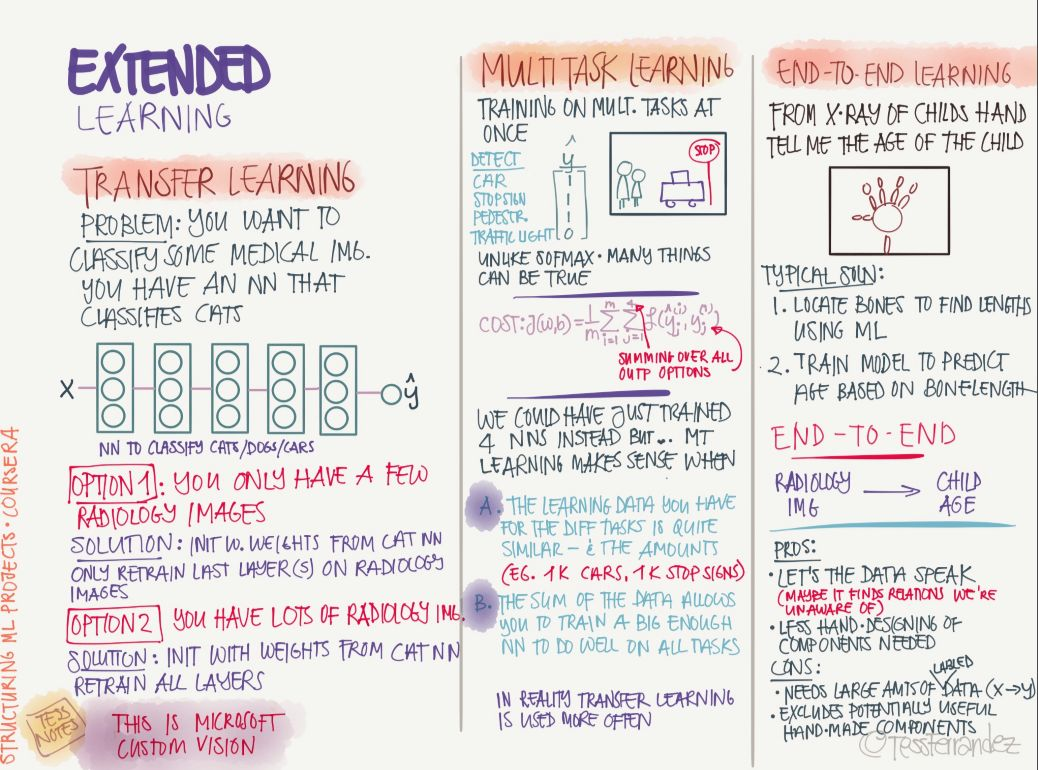 EXTENDED
LEARNING
TRANSFER LEARNING
PROBLEM: YOU WANT TO
CLASSIFY SOME MEDICAL IMG.
YOU HAVE AN NN THAT
CLASSIFIES CATS
X
ŷ
NN TO CLASSIFY CATS/DOGS/CARS
OPTION 1: YOU ONLY HAVE A FEW
RADIOLOGY IMAGES
SOLUTION: INIT W. WEIGHTS FROM CAT NN
ONLY RETRAIN LAST LAYER(S) ON RADIOLOGY
IMAGES
OPTION 2 YOU HAVE LOTS OF RADIOLOGY IMG.
SOLUTION: INIT WITH WEIGHTS FROM CAT NN
RETRAIN ALL LAYERS
TESS
NOTES
THIS IS MICROSOFT
CUSTOM VISION
STRUCTURING ML PROJECTS · COURSERA
MULTI TASK LEARNING
TRAINING ON MULT. TASKS AT
ONCE
DETECT
CAR
STOPSIGN
PEDESTR.
TRAFFIC LIGHT
ŷ
1
0
STOP
UNLIKE SOFMAX · MANY THINGS
CAN BE TRUE
COST: J(w,b) = 1/m Σ i=1 m Σ j=1 4 L(ŷj(i), yj(i))
SUMMING OVER ALL
OUTP OPTIONS
WE COULD HAVE JUST TRAINED
4 NNS INSTEAD BUT... MT
LEARNING MAKES SENSE WHEN
A. THE LEARNING DATA YOU HAVE
FOR THE DIFF TASKS IS QUITE
SIMILAR - & THE AMOUNTS
(EG. 1K CARS, 1K STOP SIGNS)
B. THE SUM OF THE DATA ALLOWS
YOU TO TRAIN A BIG ENOUGH
NN TO DO WELL ON ALL TASKS
IN REALITY TRANSFER LEARNING
IS USED MORE OFTEN
END-TO-END LEARNING
FROM X-RAY OF CHILDS HAND
TELL ME THE AGE OF THE CHILD
TYPICAL SOLN:
1. LOCATE BONES TO FIND LENGTHS
USING ML
2. TRAIN MODEL TO PREDICT
AGE BASED ON BONELENGTH
END-TO-END
RADIOLOGY
IMG
→
CHILD
AGE
PROS:
· LET'S THE DATA SPEAK
(MAYBE IT FINDS RELATIONS WE'RE
UNAWARE OF)
· LESS HAND-DESIGNING OF
COMPONENTS NEEDED
CONS:
LABLED
· NEEDS LARGE AMTS OF DATA (X→Y)
· EXCLUDES POTENTIALLY USEFUL
HAND-MADE COMPONENTS
@TessFerrandez